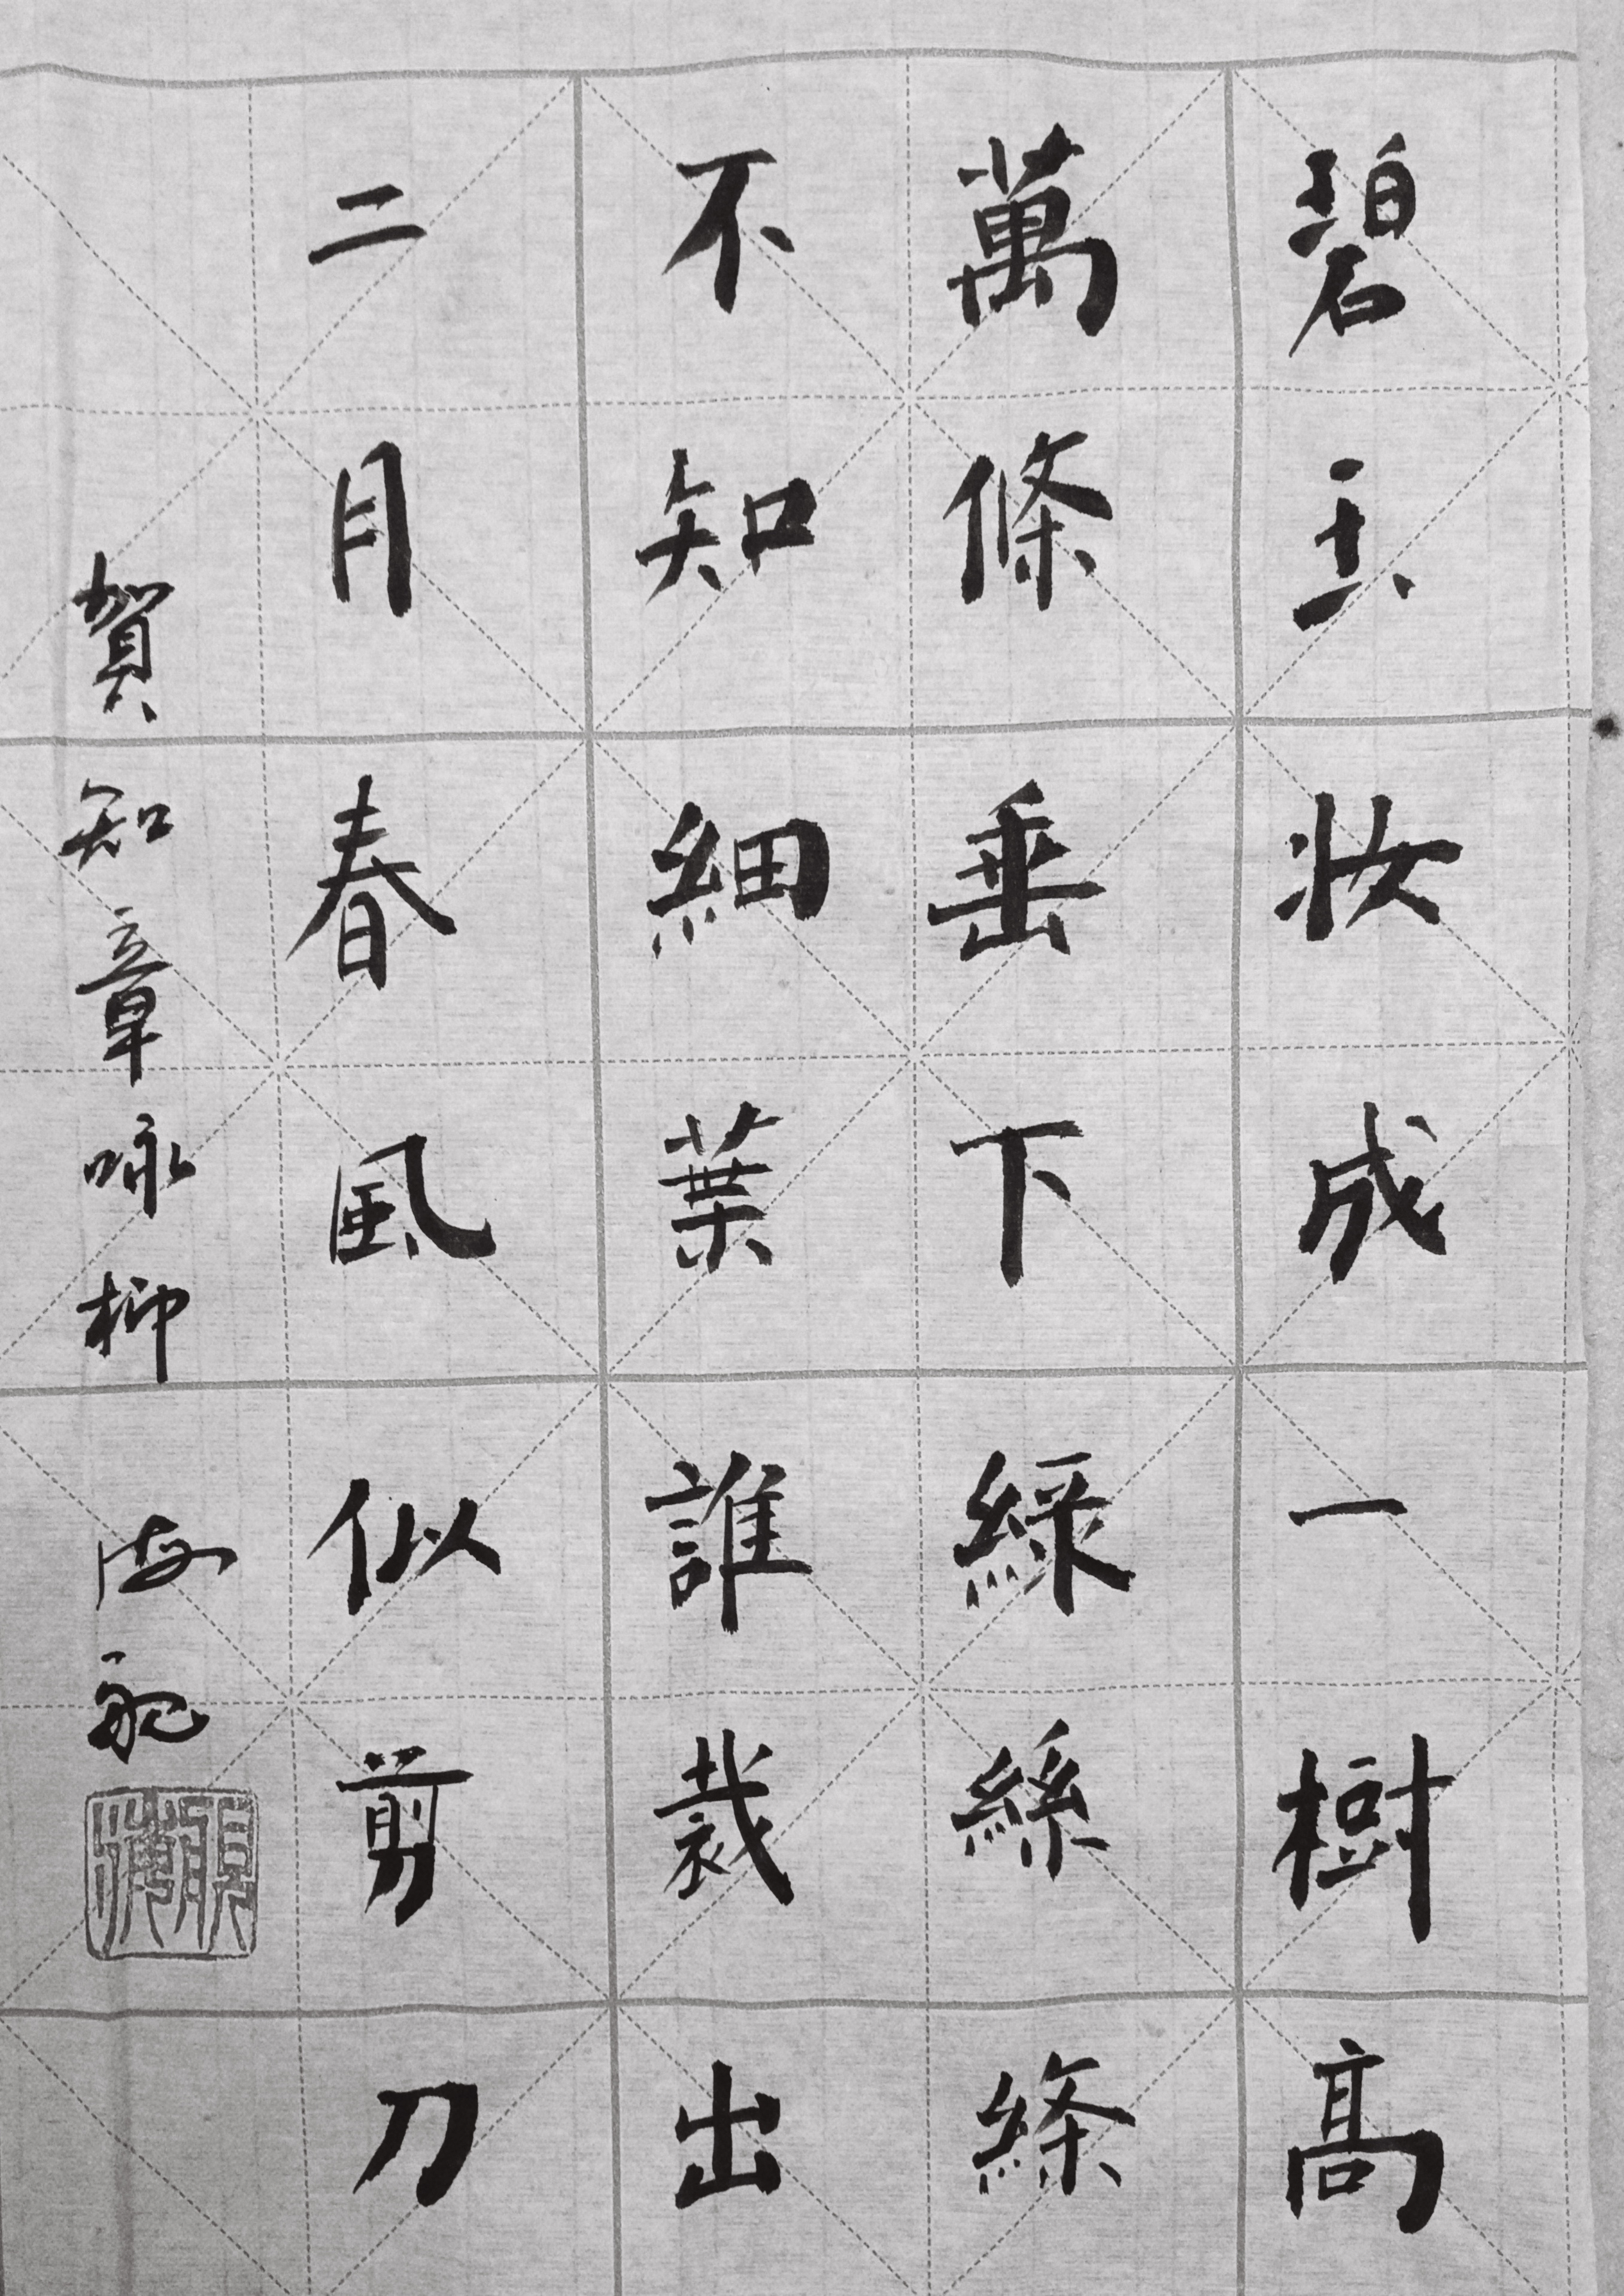 碧玉妝成一樹高
萬條垂下綠絲絛
不知細葉誰裁出
二月春風似剪刀
賀知章咏柳